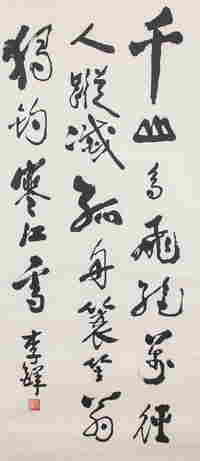 千山鳥飛絕萬徑
人蹤滅孤舟蓑笠翁
獨釣寒江雪
李鐸